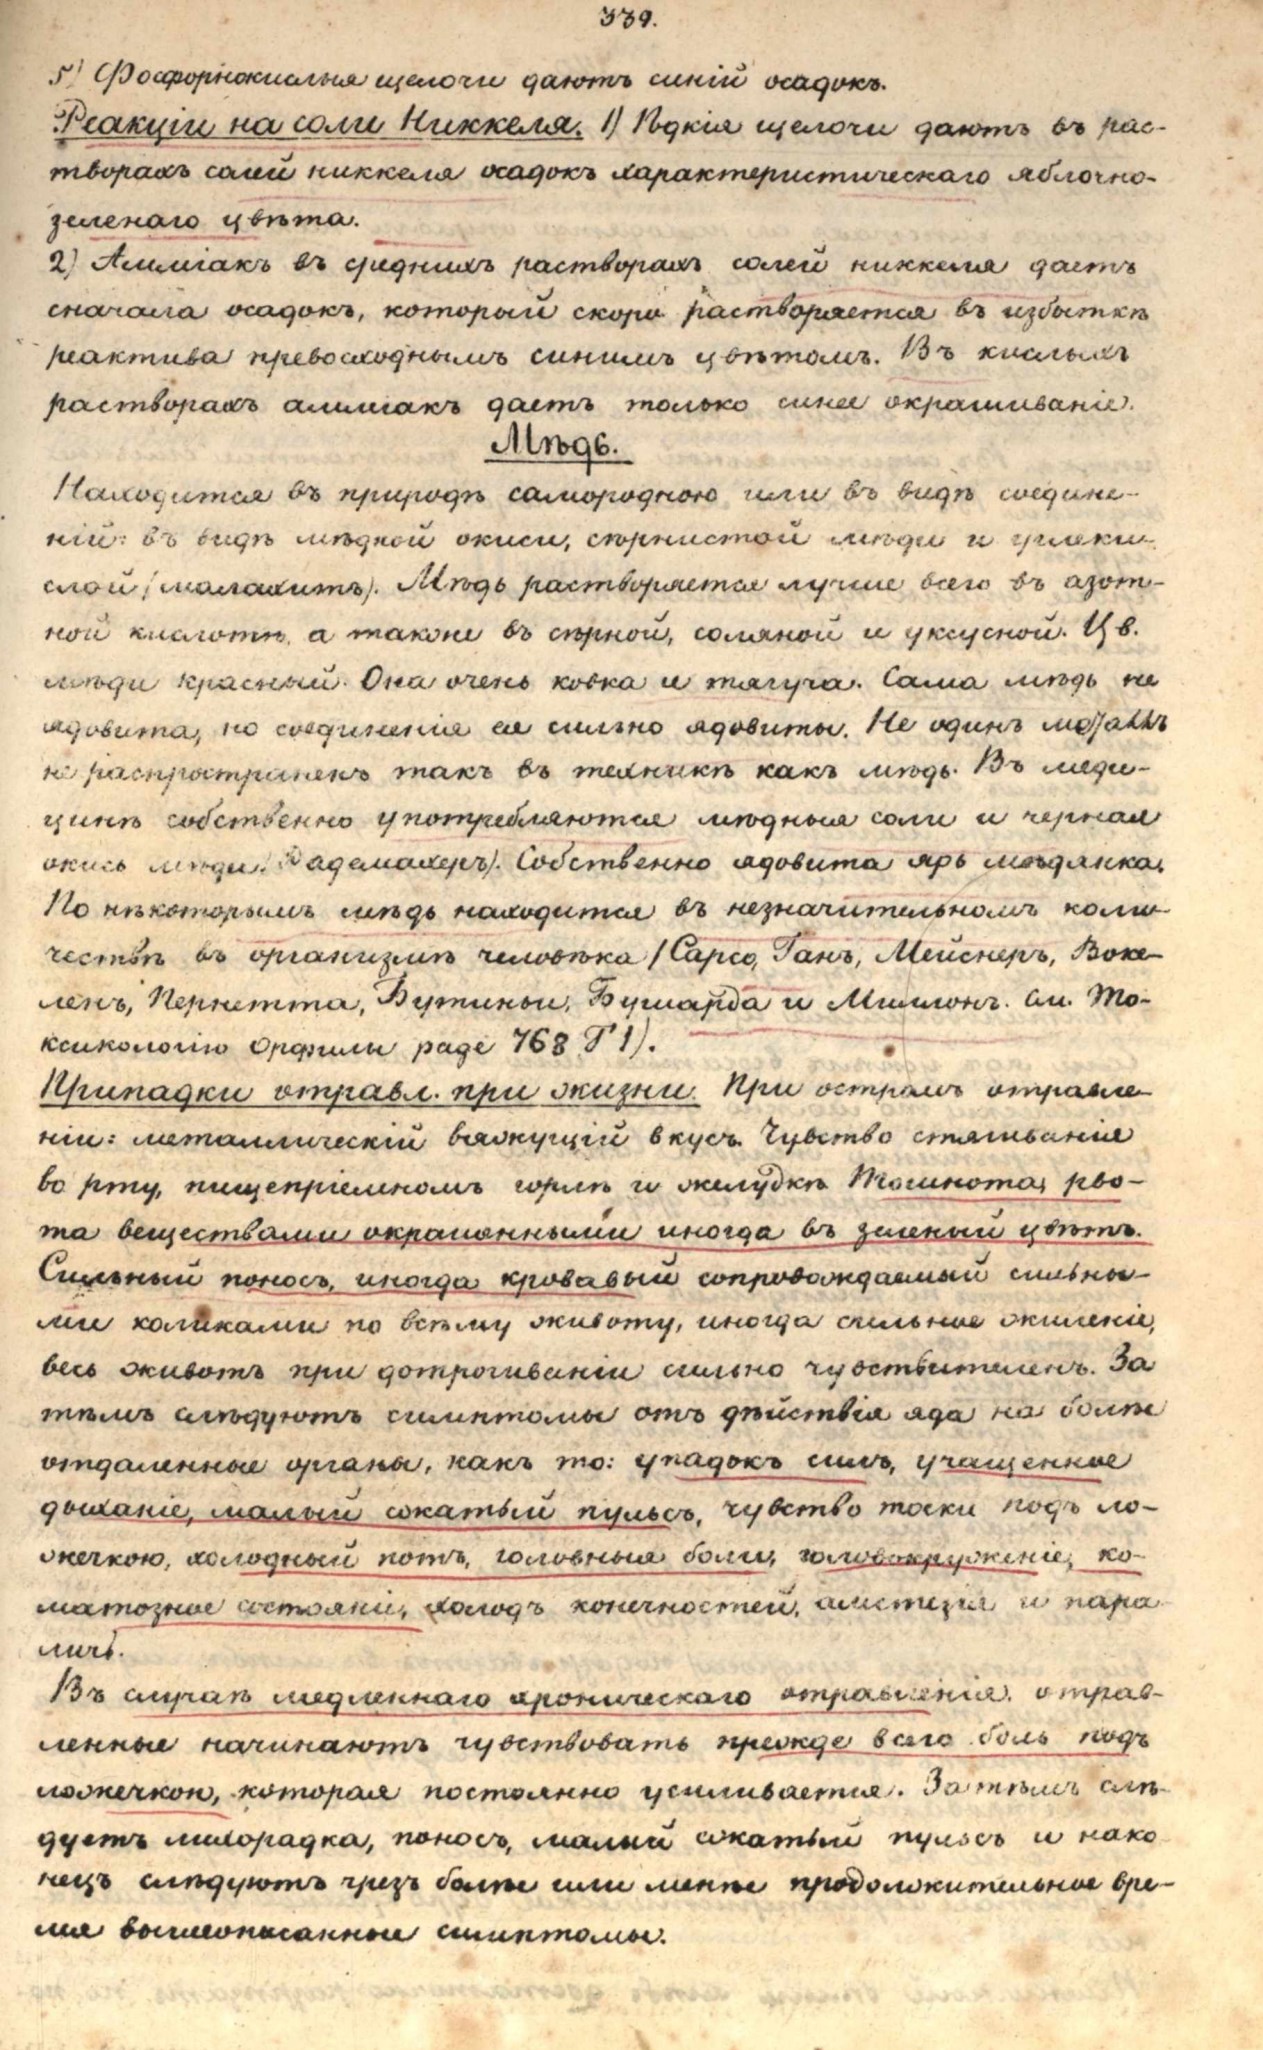 339.
5) Фосфорнокислыя щелочи даютъ синій осадокъ.
Реакціи на соли Никкеля. 1) Ѣдкія щелочи даютъ въ рас-
творахъ солей никкеля осадокъ характеристическаго яблочно-
зеленаго цвѣта.
2) Амміакъ въ среднихъ растворахъ солей никкеля даетъ
сначала осадокъ, который скоро растворяется въ избыткѣ
реактива превосходнымъ синимъ цвѣтомъ. Въ кислыхъ
растворахъ амміакъ даетъ только синее окрашиваніе.
Мѣдь.
Находится въ природѣ самородною или въ видѣ соедине-
ній: въ видѣ мѣдной окиси, сѣрнистой мѣди и углеки-
слой (малахитъ). Мѣдь растворяется лучше всего въ азот-
ной кислотѣ, а также въ сѣрной, соляной и уксусной. Цв.
мѣди красный. Она очень ковка и тягуча. Сама мѣдь не
ядовита, но соединенія ея сильно ядовиты. Не одинъ металлъ
не распространенъ такъ въ техникѣ какъ мѣдь. Въ меди-
цинѣ собственно употребляются мѣдныя соли и черная
окись мѣди (Радемахеръ). Собственно ядовита ярь мѣдянка.
По нѣкоторымъ мѣдь находится въ незначительномъ коли-
чествѣ въ организмѣ человѣка (Сарсо, Ганъ, Мейснеръ, Воке-
ленъ, Пернетта, Бутиньи, Бушарда и Миллонъ. См. То-
ксикологію Орфилы 768 Т 1).
Припадки отравл. при жизни. При остромъ отравле-
ніи: металлическій вяжущій вкусъ. Чувство стягиванія
во рту, пищепріемномъ горлѣ и желудкѣ. Тошнота, рво-
та веществами окрашенными иногда въ зеленый цвѣтъ.
Сильный поносъ, иногда кровавый сопровождаемый сильны-
ми коликами по всему животу, иногда сильное жженіе,
весь животъ при дотрогиваніи сильно чувствителенъ. За
тѣмъ слѣдуютъ симптомы отъ дѣйствія яда на болѣе
отдаленные органы, какъ то: упадокъ силъ, учащенное
дыханіе, малый сжатый пульсъ, чувство тоски подъ ло-
жечкою, холодный потъ, головныя боли, головокруженіе, ко-
матозное состояніе, холодъ конечностей, анестезія и пара
личъ.
Въ случаѣ медленнаго хроническаго отравленія, отрав-
ленные начинаютъ чувствовать прежде всего боль подъ
ложечкою, которая постоянно усиливается. За тѣмъ слѣ-
дуетъ лихорадка, поносъ, малый сжатый пульсъ и нако
нецъ слѣдуютъ чрезъ болѣе или менѣе продолжительное вре-
мя вышеописанные симптомы.